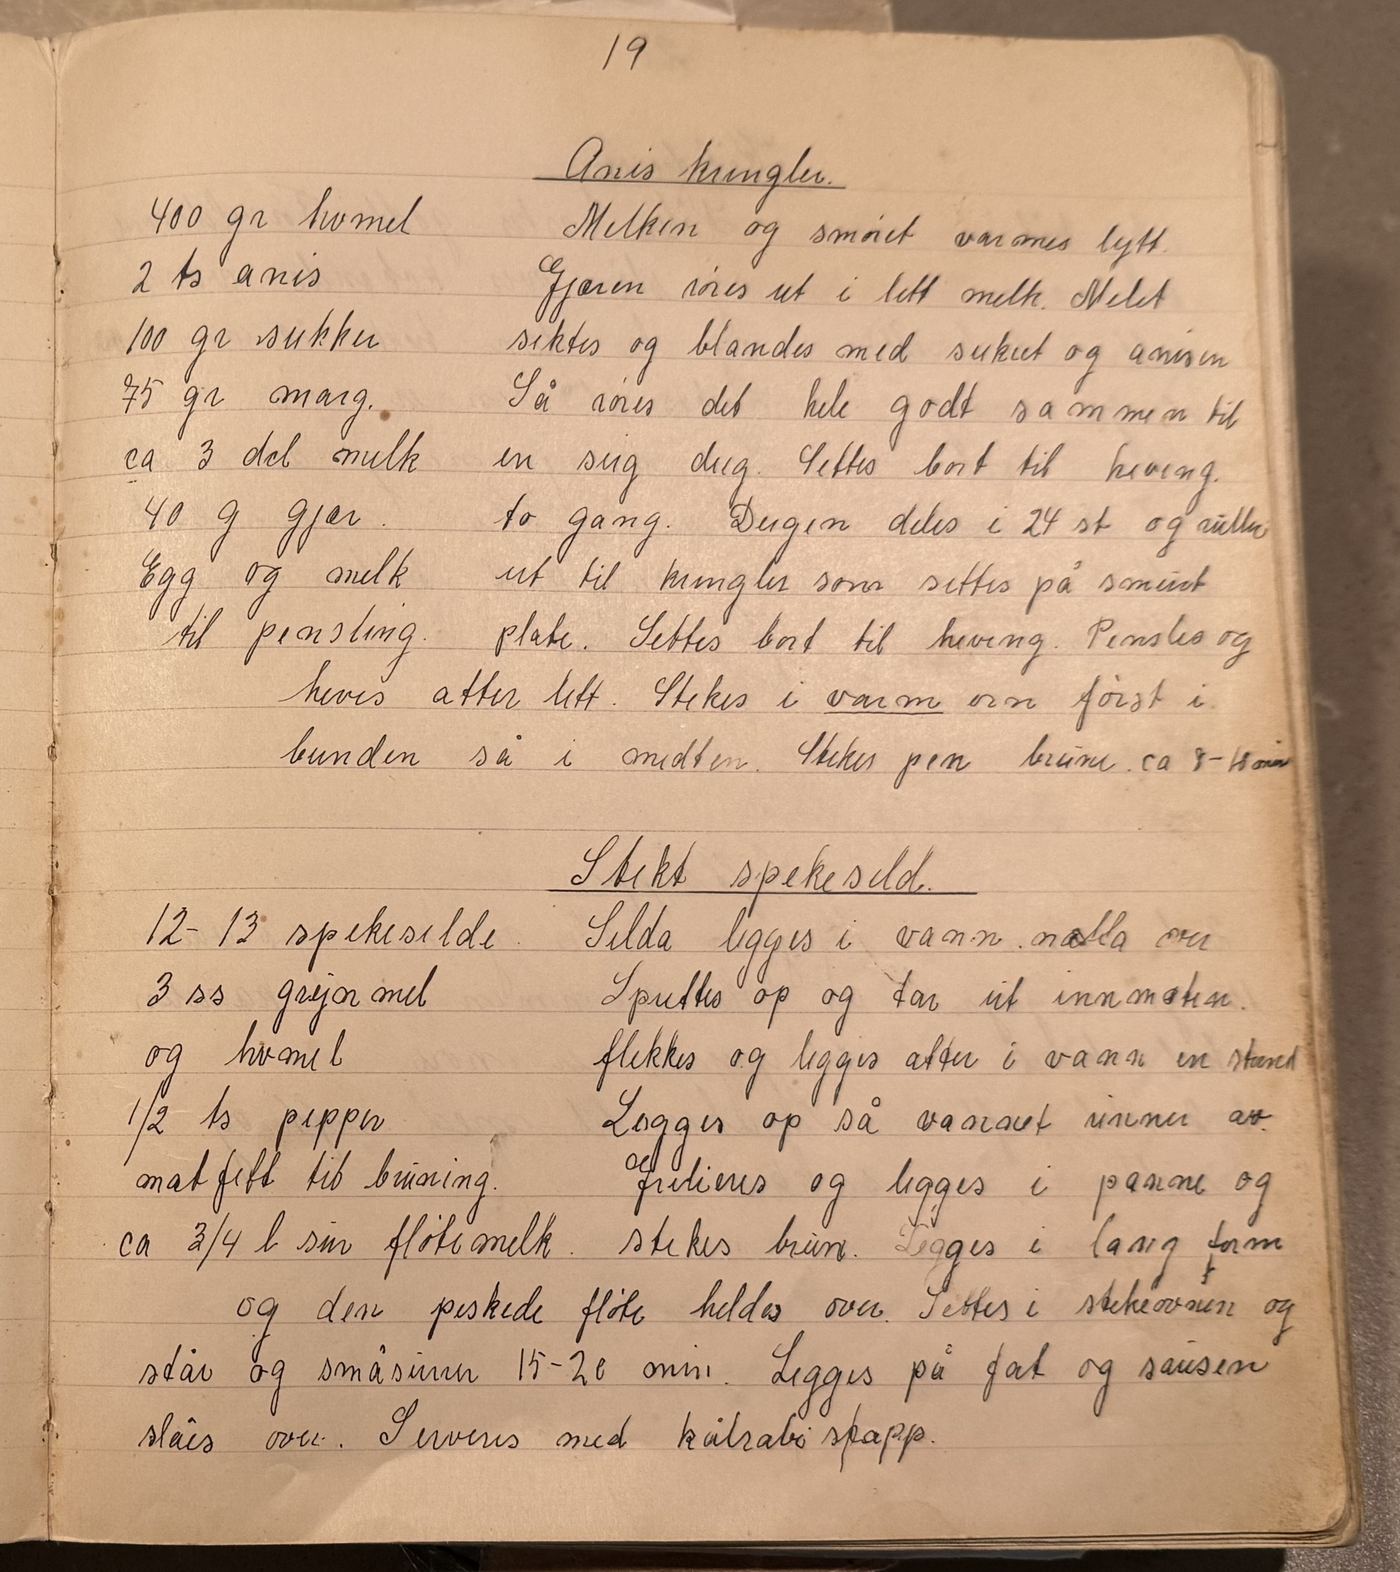 19
Anis kringler.
400 gr hvmel
2 ts anis
100 gr sukker
75 gr marg.
ca 3 del melk
40 g gjær.
Egg og melk
til pensling.
Melken og smøret varmes lytt.
Gjæren røres ut i litt melk. Melet
siktes og blandes med sukret og anisen
Så røres det hele godt sammen til
en seig deig. Settes bort til heving.
to gang. Deigen deles i 24 st og rulles
ut til kringler som settes på smurt
plate. Settes bort til heving. Pensles og
heves atter litt. Stekes i varm ovn først i
bunden så i midten. Stekes pen brune. ca 8-10 min
Stekt spekesild.
12-13 spekesilde
3 ss grejon mel
og hvmel
1/2 ts pepper
matfett til bruning.
ca 3/4 l sur fløtemelk.
Silda legges i vann natta over
Sprettes op og tar ut innmaten.
flekkes og legges atter i vann en stund
Legges op så vannet rinner av.
Frilieres og legges i panne og
stekes brun. Legges i lang form
og den piskede fløte heldes over. Settes i stekeovnen og
står og småsurrer 15-20 min. Legges på fat og sausen
slåes over. Serveres med kålrabi stapp.